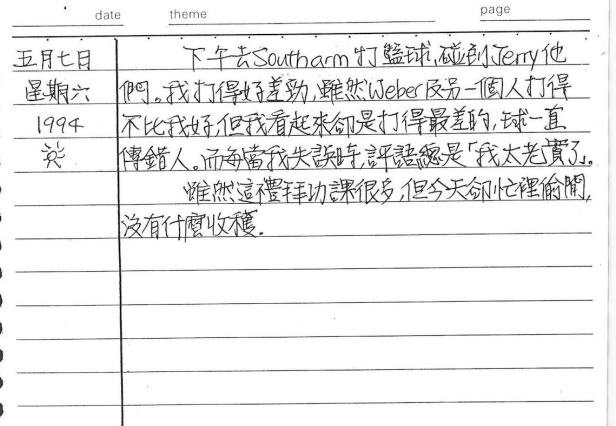 date theme page
五月七日
星期六
1994
下午去Southarm打籃球,碰到Jerry他
們。我打得好差勁,雖然Weber及另一個人打得
不比我好,但我看起來卻是打得最差的,球一直
傳錯人。而每當我失誤時,評語總是「我太老實了」。
雖然這禮拜功課很多,但今天卻忙裡偷閒,
沒有什麼收穫.